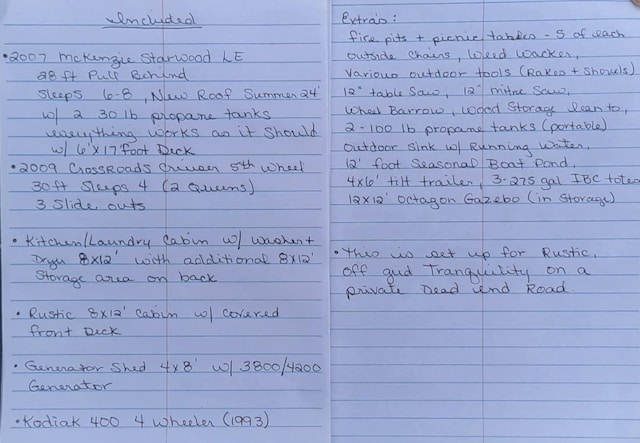 Included
• 2007 McKenzie Starwood LE
28 ft Pull Behind
Sleeps 6-8, New Roof Summer 24'
w/ 2 30 lb propane tanks
everything works as it should
w/ 6'x17 Foot Deck
• 2009 CrossRoads Cruiser 5th wheel
30ft Sleeps 4 (2 Queens)
3 Slide outs
• Kitchen/Laundry Cabin w/ washer +
Dryer 8x12' with additional 8x12'
Storage area on back
• Rustic 8x12' Cabin w/ covered
front Deck
• Generator Shed 4x8' w/ 3800/4200
Generator
• Kodiak 400 4 wheeler (1993)
Extra's:
fire pits + picnic tables - 5 of each
outside chairs, Weed Wacker,
Various outdoor tools (Rakes + Shovels)
12" table Saw, 12" mitre Saw,
Wheel Barrow, Wood Storage lean to,
2-100 lb propane tanks (portable)
Outdoor Sink w/ Running Water,
12' foot Seasonal Boat Pond,
4x6' tilt trailer, 3-275 gal IBC totes
12x12' Octagon Gazebo (in Storage)
• This is set up for Rustic,
off grid Tranquility on a
private Dead end Road